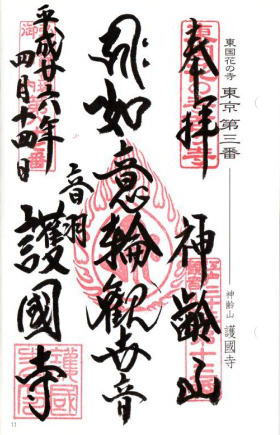 東国花の寺 東京 第三番
神齢山 護國寺
奉拝
神齢山
如意輪観世音
音羽
護國寺
平成廿六年
四月十四日
11